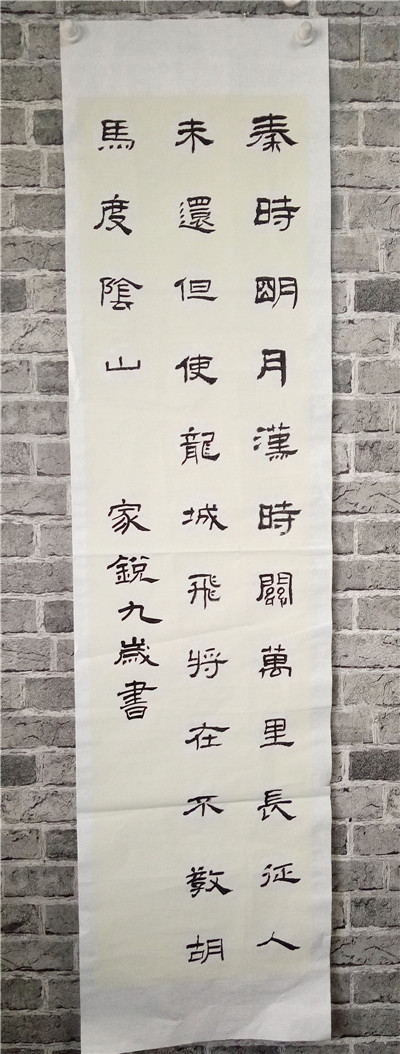 秦時明月漢時關萬里長征人
未還但使龍城飛將在不教胡
馬度陰山
家銳九歲書